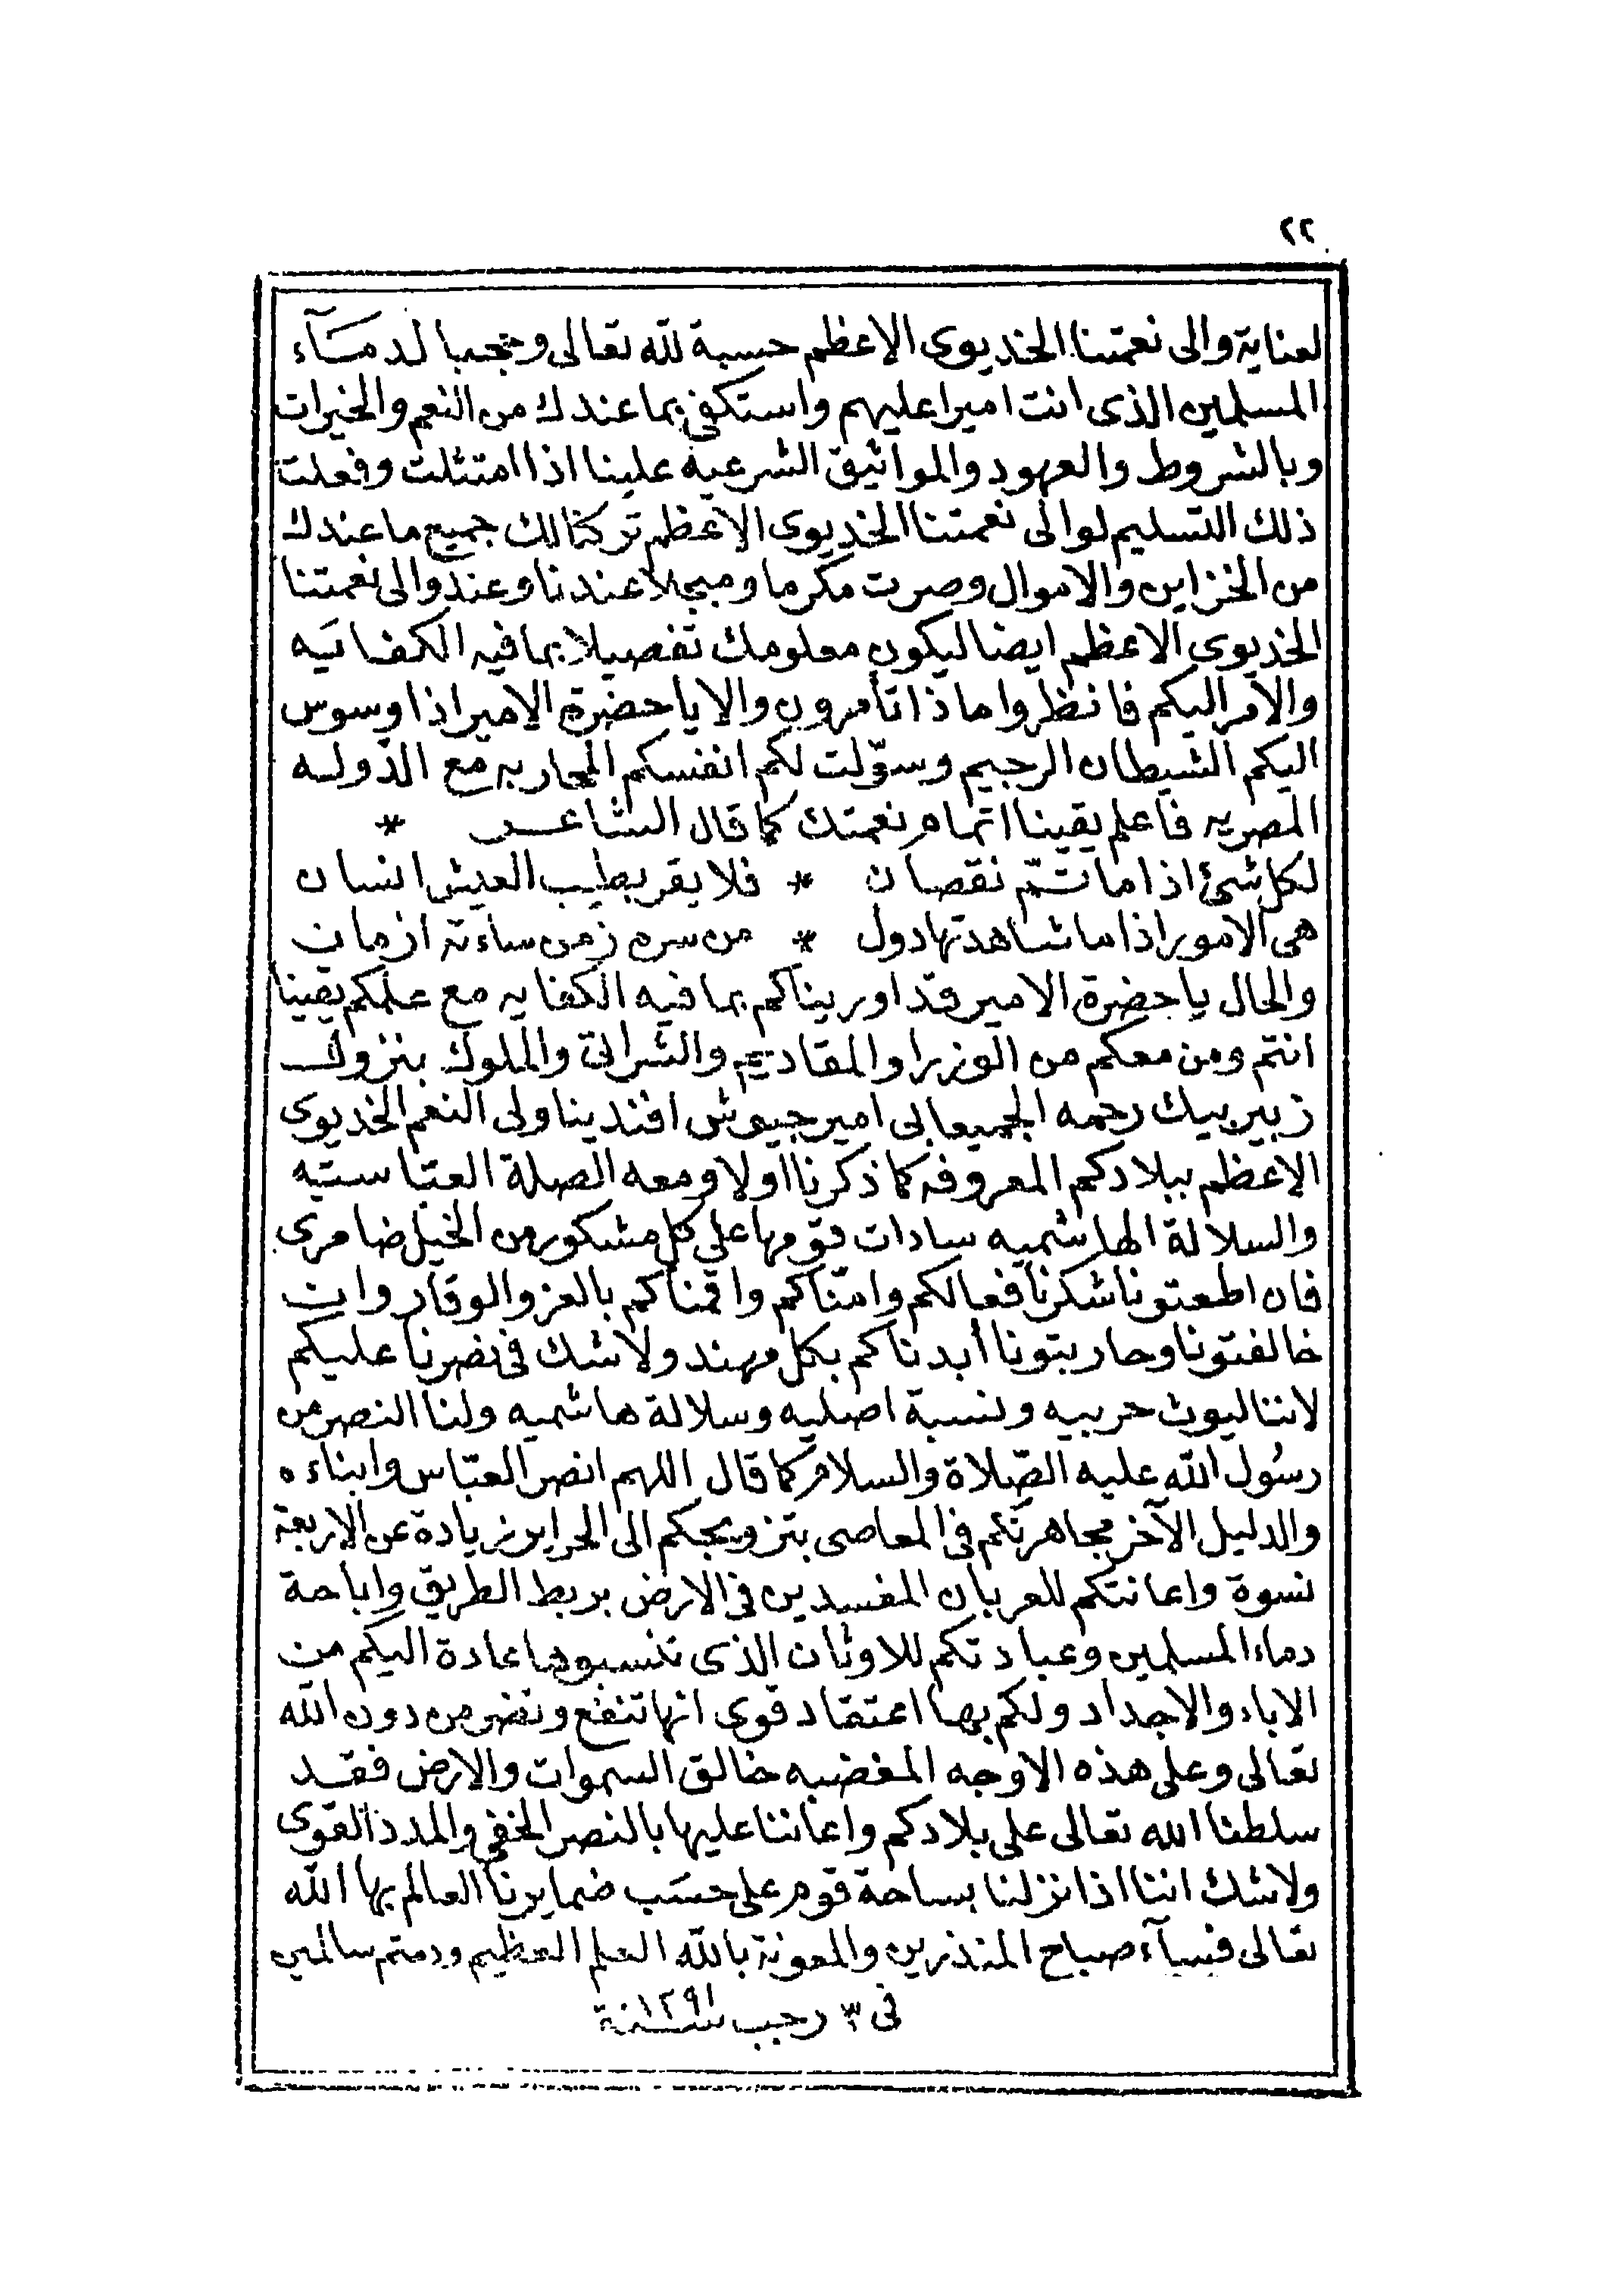 ٢٢
لعناية والى نعمتنا الخديوى الاعظم حسبة لله تعالى وتجبا لدمآء
المسلمين الذى انت اميرا عليهم واستكفى بما عندك من النعم والخيرات
وبالشروط والعهود والمواثيق الشرعيه علينا اذا امتثلت وفعلت
ذلك التسليم لوالى نعمتنا الخديوى الاعظم تركنا لك جميع ما عندك
من الخزاين والاموال وصرت مكرما ومبجلا عندنا وعند والى نعمتنا
الخديوى الاعظم ايضا ليكون معلومك تفصيلا بما فيه الكفايه
والامر اليكم فانظروا ماذا تأمرون والا يا حضرة الامير اذا وسوس
اليكم الشيطان الرجيم وسوّلت لكم انفسكم المحاربه مع الدوله
المصريه فاعلم يقينا اتمام نعمتك كما قال الشاعر *
لكل شئ اذا ما تمّ نقصان * فلا يغر بطيب العيش انسان
هى الامور اذا ما شاهدتها دول * من سره زمن ساءته ازمان
والحال يا حضرة الامير قد اوريناكم بما فيه الكفايه مع علمكم يقينا
انتم ومن معكم من الوزرا والمقاديم والشراتى والملوك بنزوك
زبير بيك رحمه الجميعابى امير جيوش افندينا ولى النعم الخديوى
الاعظم ببلادكم المعروفه كما ذكرنا اولا ومعه الصلة العباسيه
والسلالة الهاشميه سادات قومها على كل مشكور من الخيل ضامرى
فان اطعتونا شكرنا فعالكم وامنّاكم واقمناكم بالعز والوقار وان
خالفتونا وحاربتونا أبدناكم بكل مهند ولا شك فى نصرنا عليكم
لاننا ليوث حربيه ونسبة اصليه وسلالة هاشميه ولنا النصر من
رسول الله عليه الصّلاة والسلام كما قال اللهم انصر العبّاس وابناءه
والدليل الآخر مجاهرتكم فى المعاصى بتزويجكم الى الحراير زيادة عن الاربعة
نسوة واعانتكم للعربان المفسدين فى الارض بربط الطريق واباحة
دماء المسلمين وعبادتكم للاوثان الذى تنسبوها عادة اليكم من
الاباء والاجداد ولكم بها اعتقاد قوى انها تنفع وتضر من دون الله
تعالى وعلى هذه الاوجه المغضبه خالق السموات والارض فقد
سلطنا الله تعالى على بلادكم واعاننا عليها بالنصر الخفى والمدد القوى
ولا شك اننا اذا نزلنا بساحة قوم على حسَب ضمايرنا العالم بها الله
تعالى فسآء صباح المنذرين والمعونة بالله العلى العظيم ودمتم سالمين
فى ٣ رجب سنة ١٢٩١